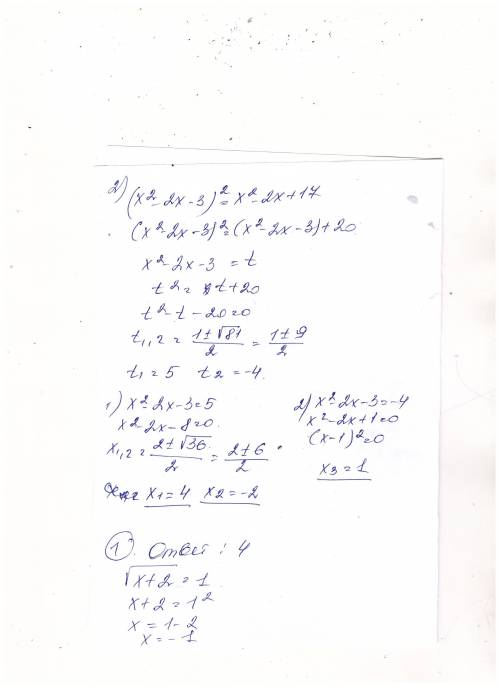 2) (x² - 2x - 3)² = x² - 2x + 17
(x² - 2x - 3)² = (x² - 2x - 3) + 20
x² - 2x - 3 = t
t² = t + 20
t² - t - 20 = 0
t₁,₂ = (1 ± √81)/2 = (1 ± 9)/2
t₁ = 5 t₂ = -4.
1) x² - 2x - 3 = 5
x² - 2x - 8 = 0.
x₁,₂ = (2 ± √36)/2 = (2 ± 6)/2
x₁ = 4 x₂ = -2
2) x² - 2x - 3 = -4
x² - 2x + 1 = 0
(x - 1)² = 0
x₃ = 1
1. Ответ: 4
√(x + 2) = 1
x + 2 = 1²
x = 1 - 2
x = -1